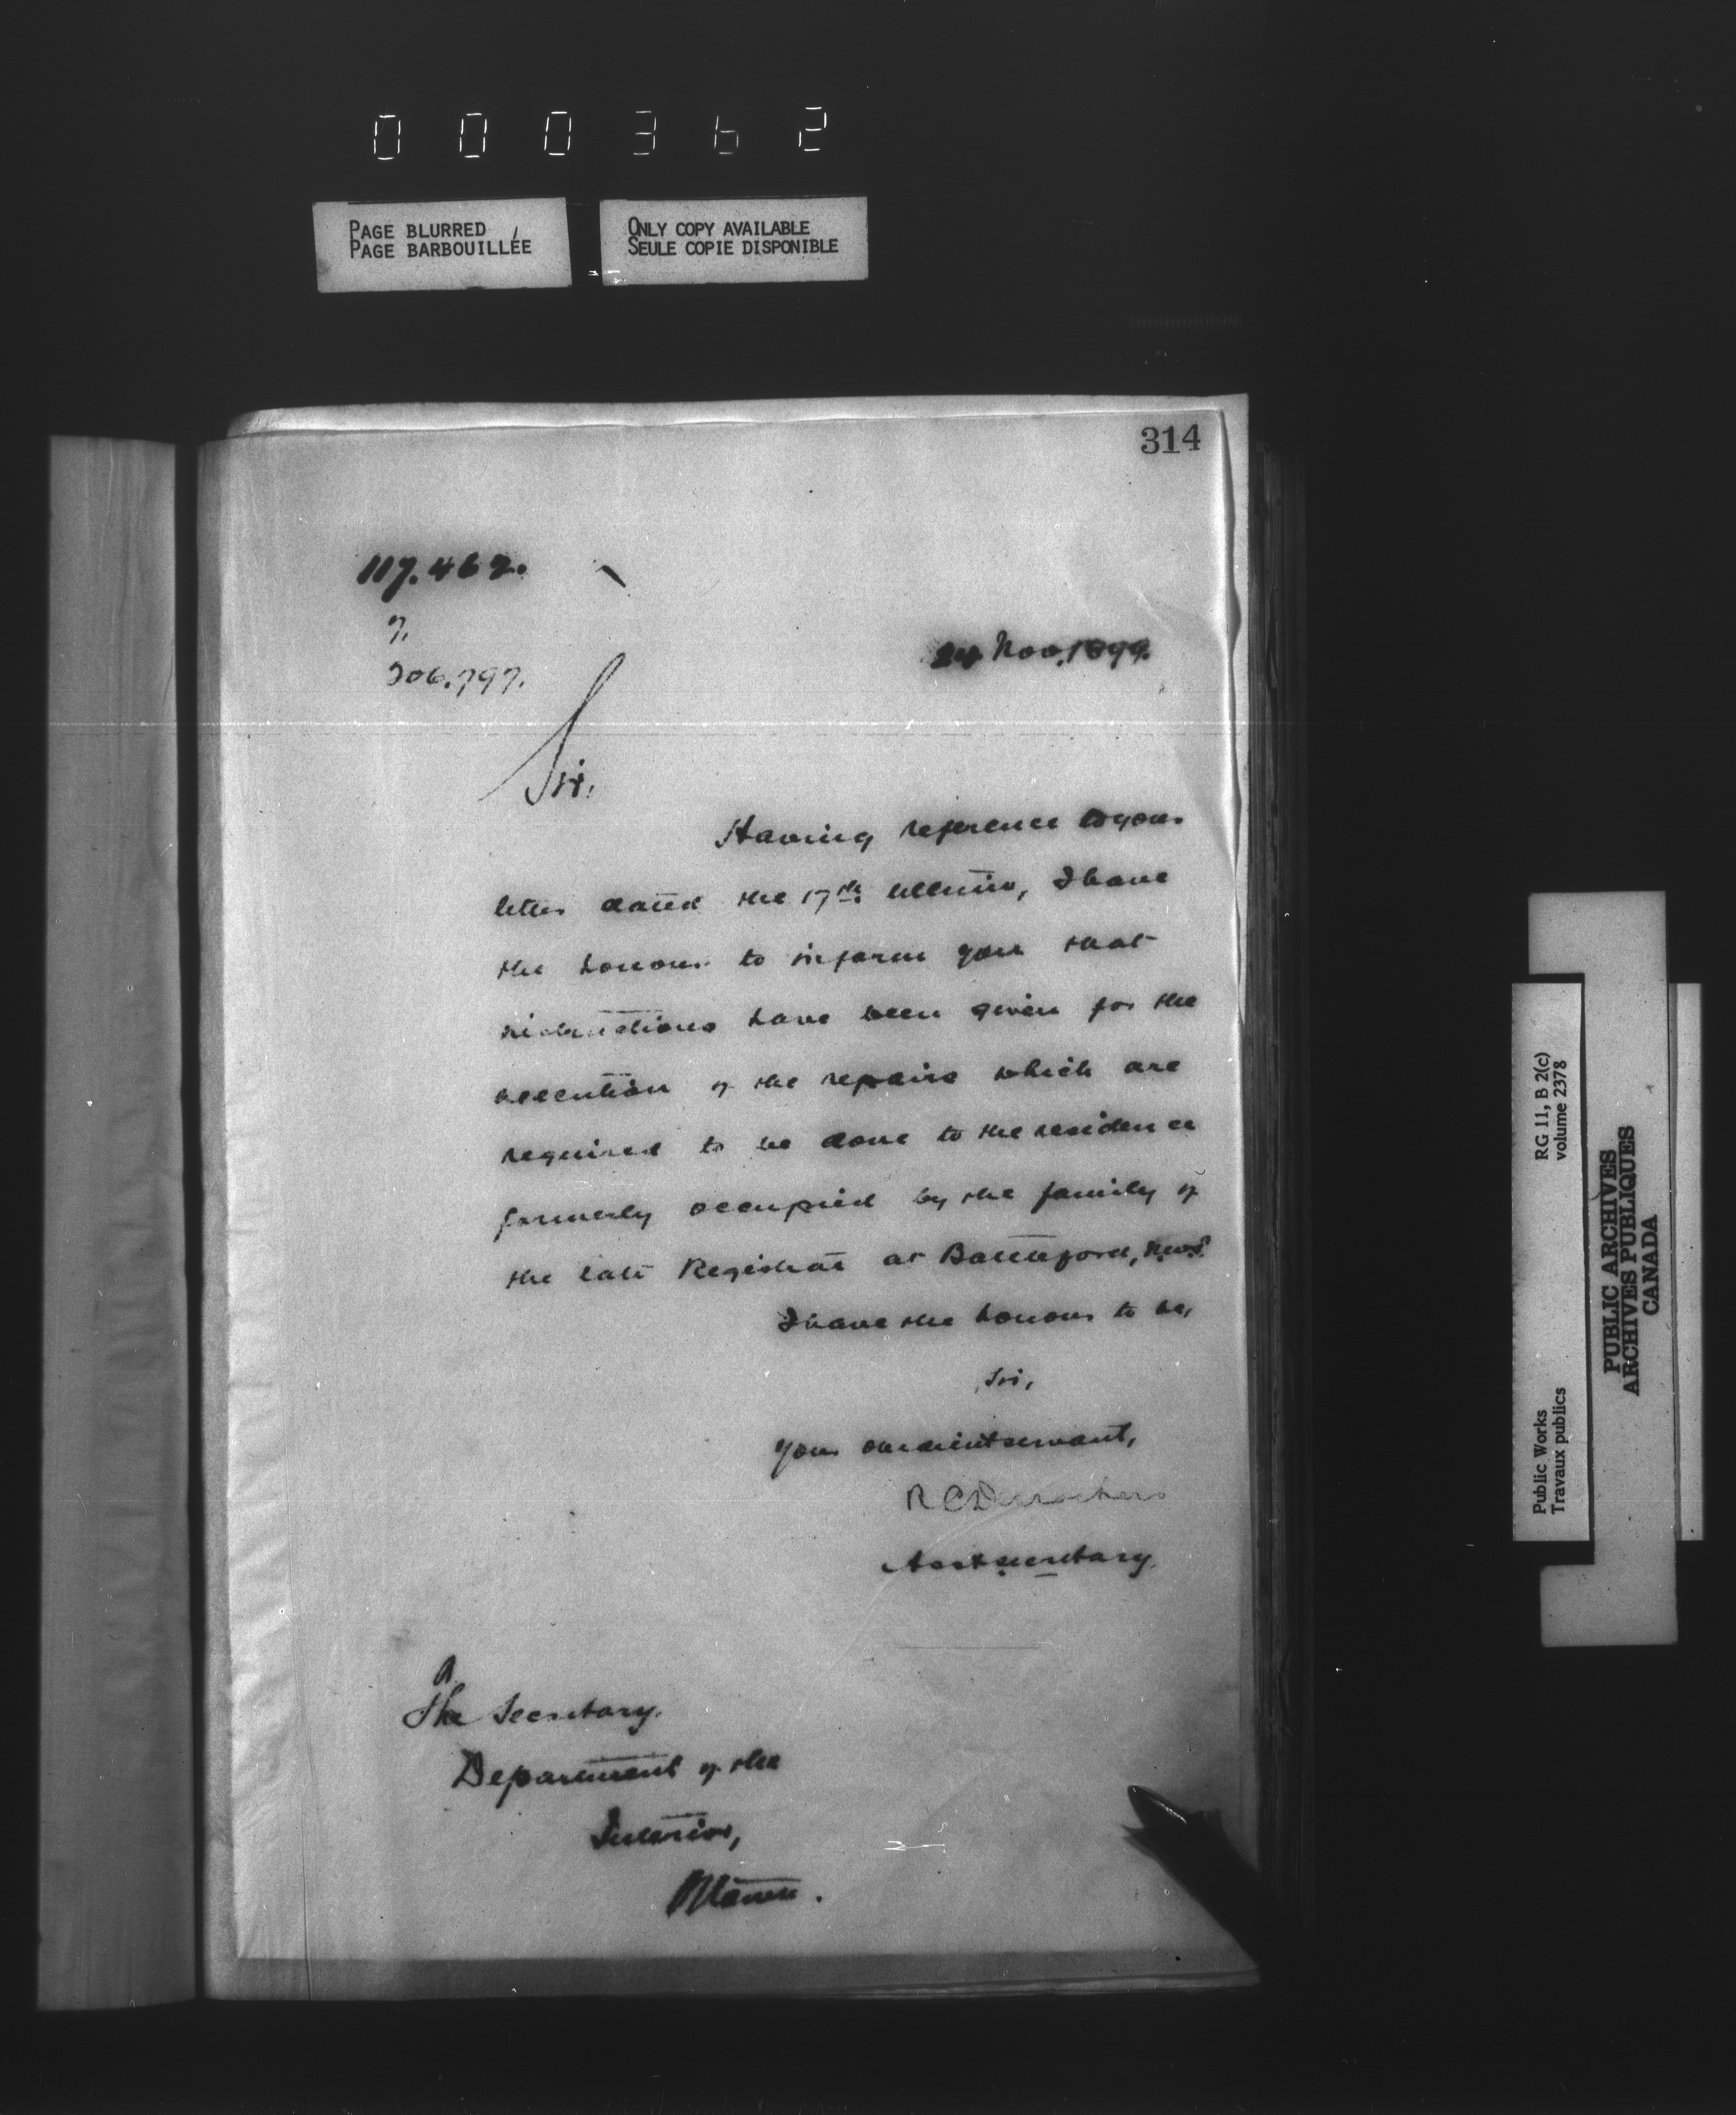 000362
PAGE BLURRED
PAGE BARBOUILLÉE
ONLY COPY AVAILABLE
SEULE COPIE DISPONIBLE
314
117.462.
7.
206.797.
24 Nov. 1899.
Sir,
Having reference to your
letter dated the 17th. ultimo, I have
the honour to inform you that
instructions have been given for the
execution of the repairs which are
required to be done to the residence
formerly occupied by the family of
the late Registrar at Battleford, N.W.T.
I have the honour to be,
Sir,
Your obedient servant,
R C Desrochers
Asst Secretary.
The Secretary.
Department of the
Interior,
Ottawa.
Public Works
Travaux publics
RG 11, B 2(c)
volume 2378
PUBLIC ARCHIVES
ARCHIVES PUBLIQUES
CANADA